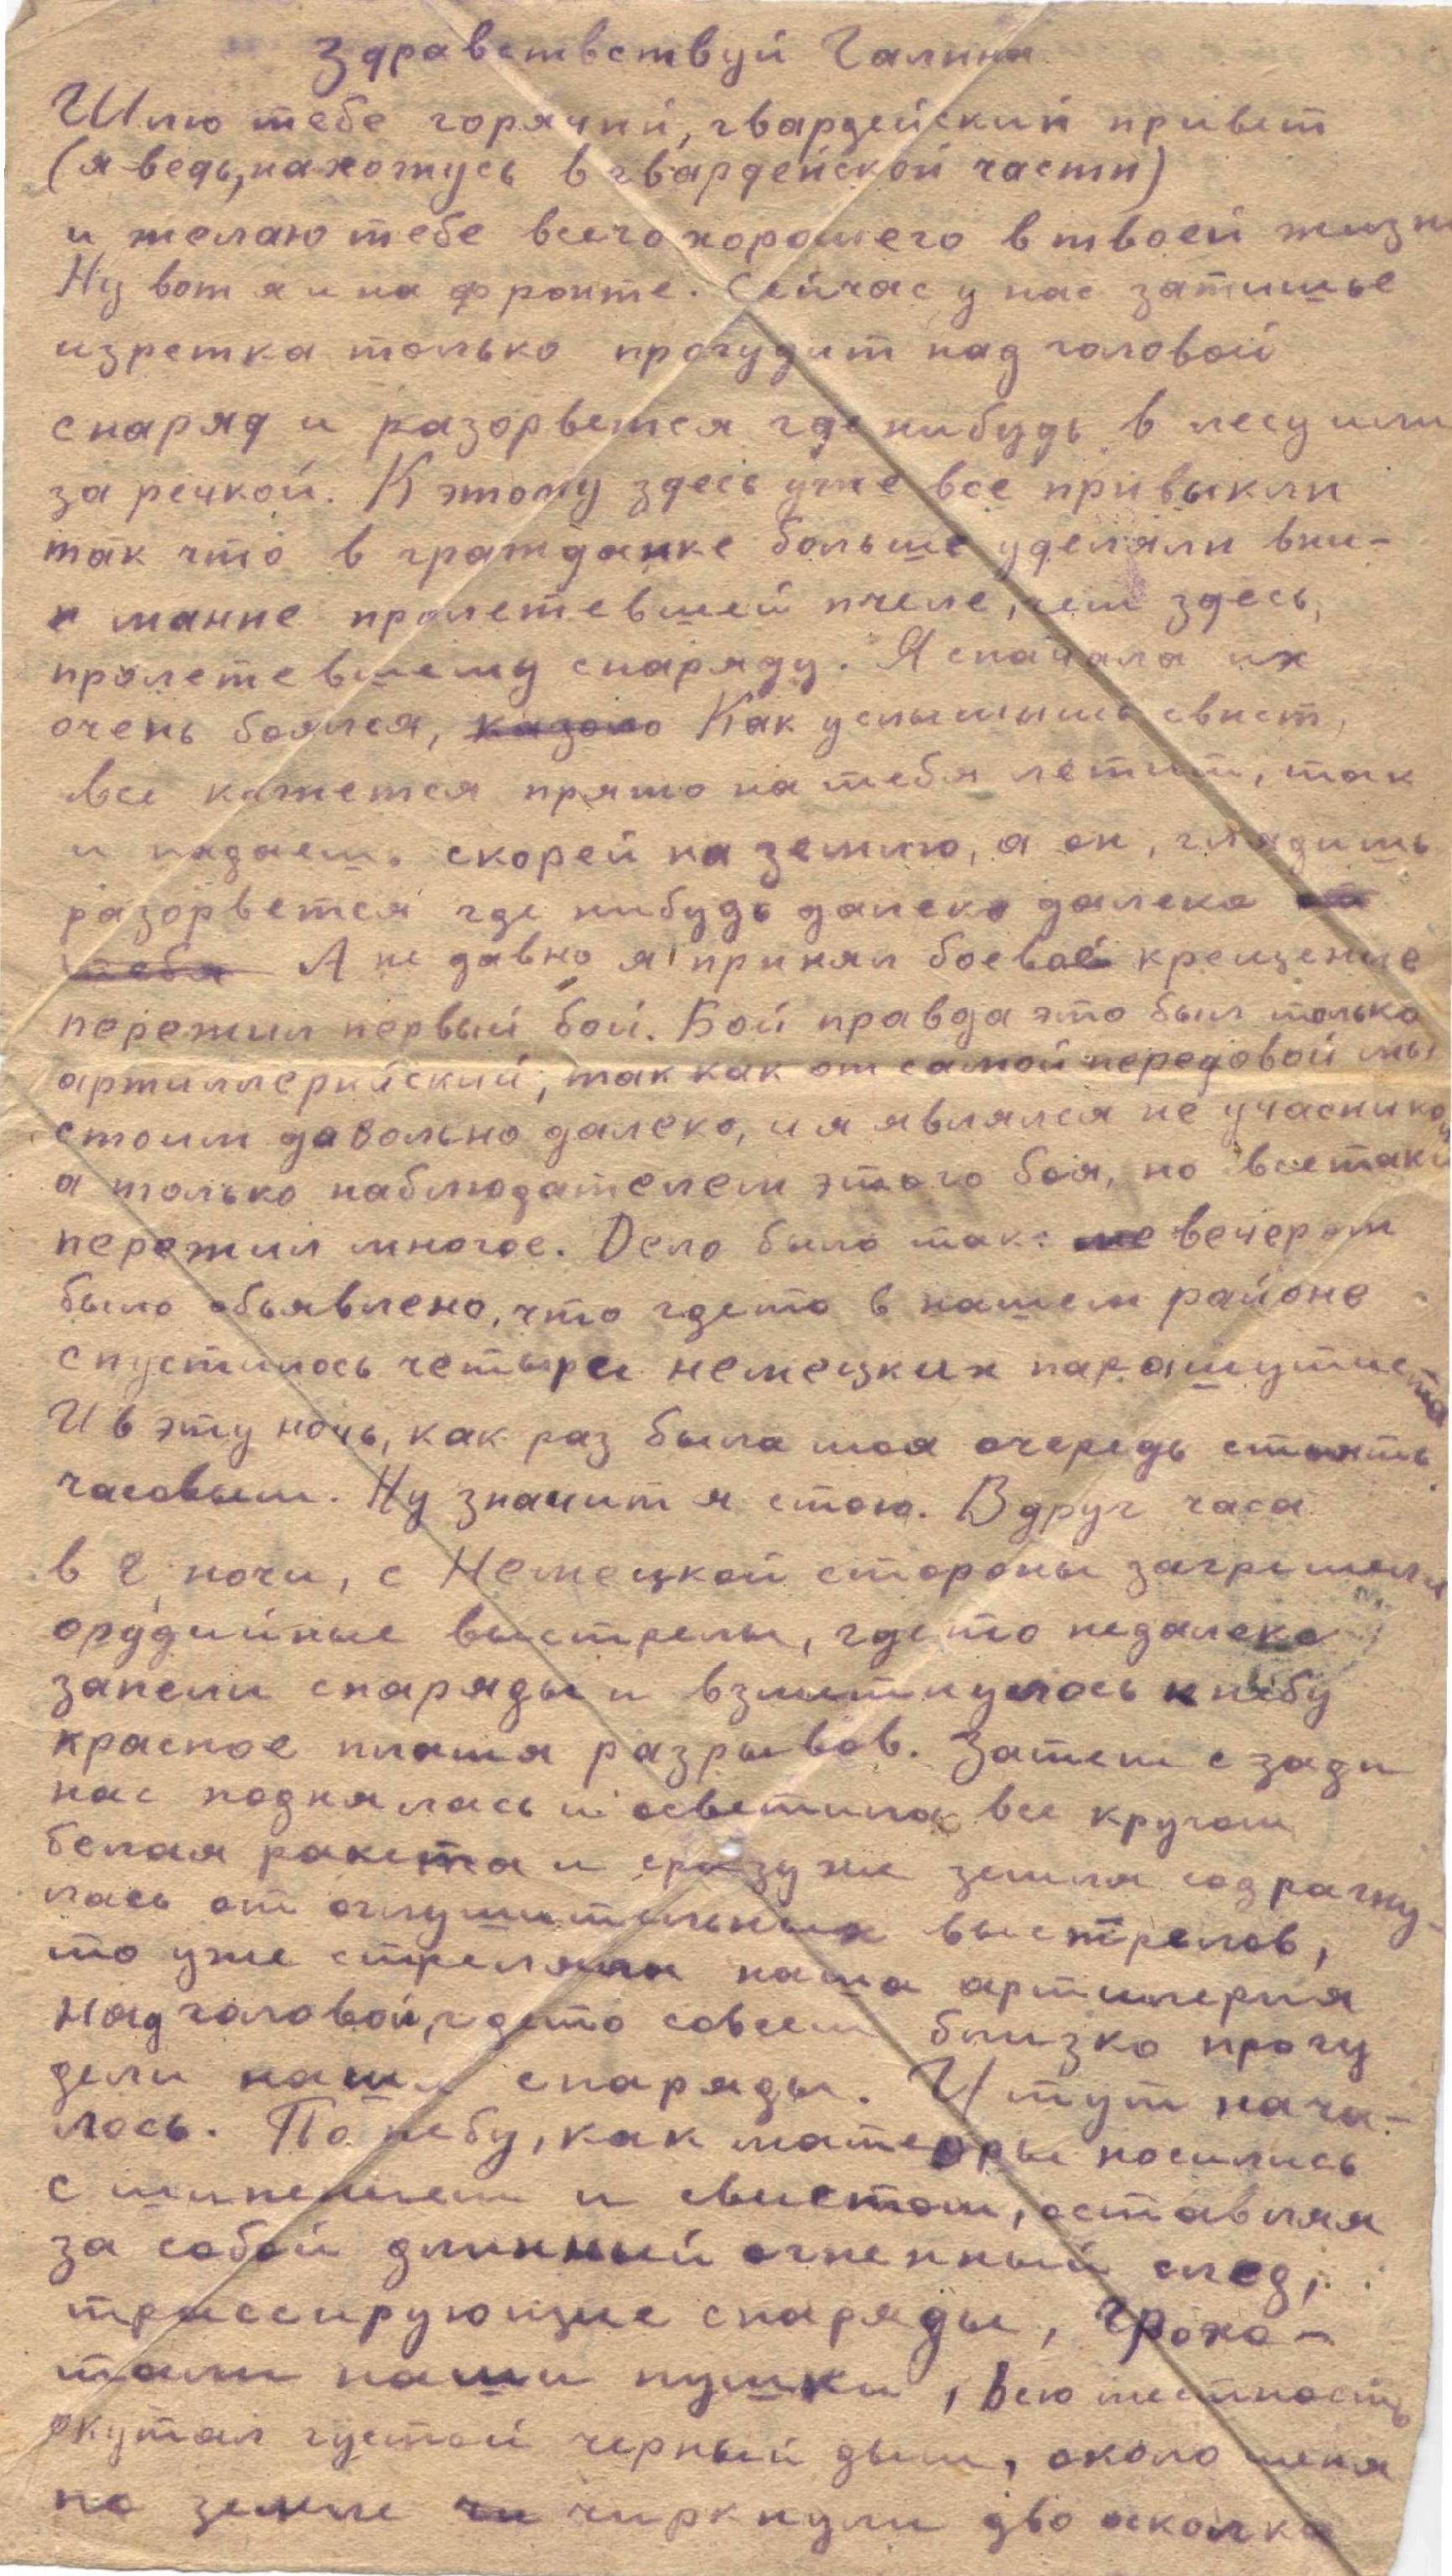 Здравствствуй Галина
Шлю тебе горячий, гвардейский привет
(я ведь, нахожусь в гвардейской части)
и желаю тебе всего хорошего в твоей жизни
Ну вот я и на фронте. Сейчас у нас затишье
изретка только прогудит над головой
снаряд и разорвется где нибудь в лесу или
за речкой. К этому здесь уже все привыкли
так что в гражданке больше уделяли вни-
мание пролетевшей пчеле, чем здесь,
пролетевшему снаряду. Я сначала их
очень боялся, казало Как услышишь свист,
все кажется прямо на тебя летит, так
и падаешь скорей на землю, а он, глядишь
разорвется где нибудь далеко далеко от
тебя А не давно я принял боевое крещение
пережил первый бой. Бой правда это был только
артиллерийский, так как от самой передовой мы
стоим давольно далеко, и я являлся не учаснико
а только наблюдателем этого боя, но всетаки
пережил многое. Дело было так: вечером
было обьявлено, что гдето в нашем районе
спустилось четыре немецких парашутиста
И в эту ночь, как раз была моя очередь стоять
часовым. Ну значит я стою. Вдруг часа
в 2 ночи, с Немецкой стороны загремели
орудийные выстрелы, гдето недалеко
запели снаряды и взметнулось к небу
красное пламя разрывов. Затем сзади
нас поднялась и осветила все кругом
белая ракета и сразу же земля содрагну-
лась от оглушительных выстрелов,
то уже стреляла наша артилерия
Над головой, гдето совсем близко прогу
дели наши снаряды. И тут нача-
лось. По небу, как матеоры носились
с шипением и свистом, оставляя
за собой длинный огненный след,
трассирующие снаряды, грохо-
тали наши пушки, всю местность
окутал густой черный дым, около меня
по земле чи чиркнули два осколка